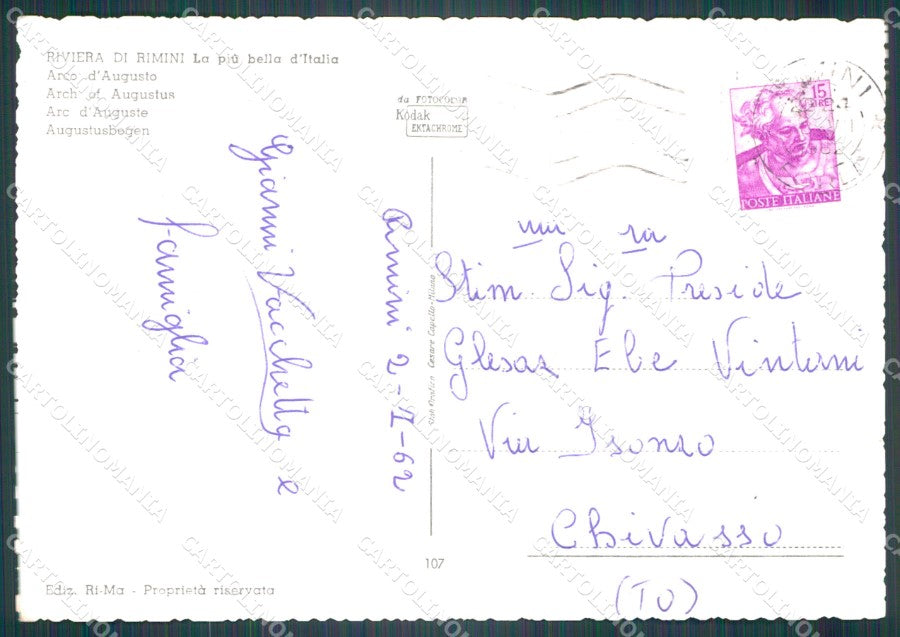 RIVIERA DI RIMINI La più bella d'Italia
Arco d'Augusto
Arch of Augustus
Arc d'Auguste
Augustusbogen
da FOTOKOLOR
Kodak
EKTACHROME
15
LIRE
POSTE ITALIANE
Gianni Vacchetta e
famiglia
Rimini 2-I-62
Stim Sig. Preside
Elbe
Via Isonzo
Chivasso
(TO)
107
Ediz. Ri-Ma - Proprietà riservata
CARTOLINOMANIA